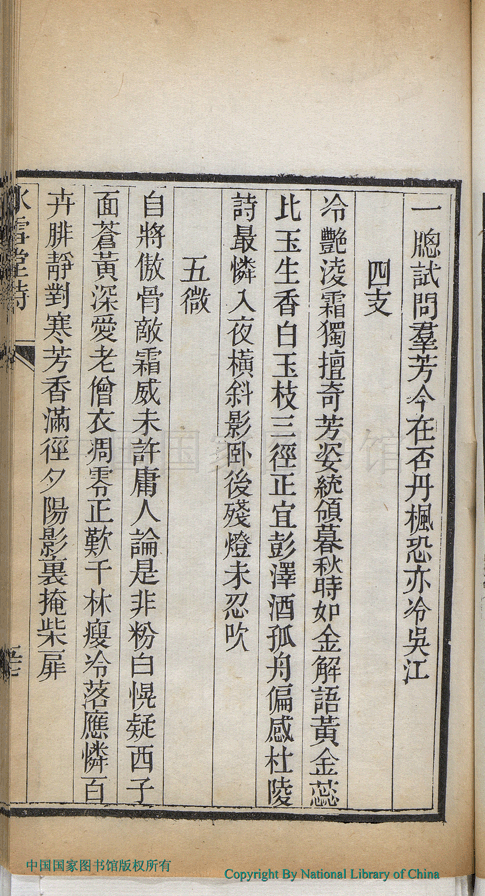 一牕試問羣芳今在否丹楓恐亦冷吳江
四支
冷艷淩霜獨擅奇芳姿統領暮秋時如金解語黃金蕊
比玉生香白玉枝三徑正宜彭澤酒孤舟偏感杜陵
詩最憐入夜橫斜影卧後殘燈未忍吹
五微
自將傲骨敵霜威未許庸人論是非粉白幌疑西子
面蒼黃深愛老僧衣凋零正歎千林瘦冷落應憐百
卉腓靜對寒芳香滿徑夕陽影裏掩柴扉
冰雪堂詩
中国国家图书馆
中国国家图书馆版权所有
Copyright By National Library of China